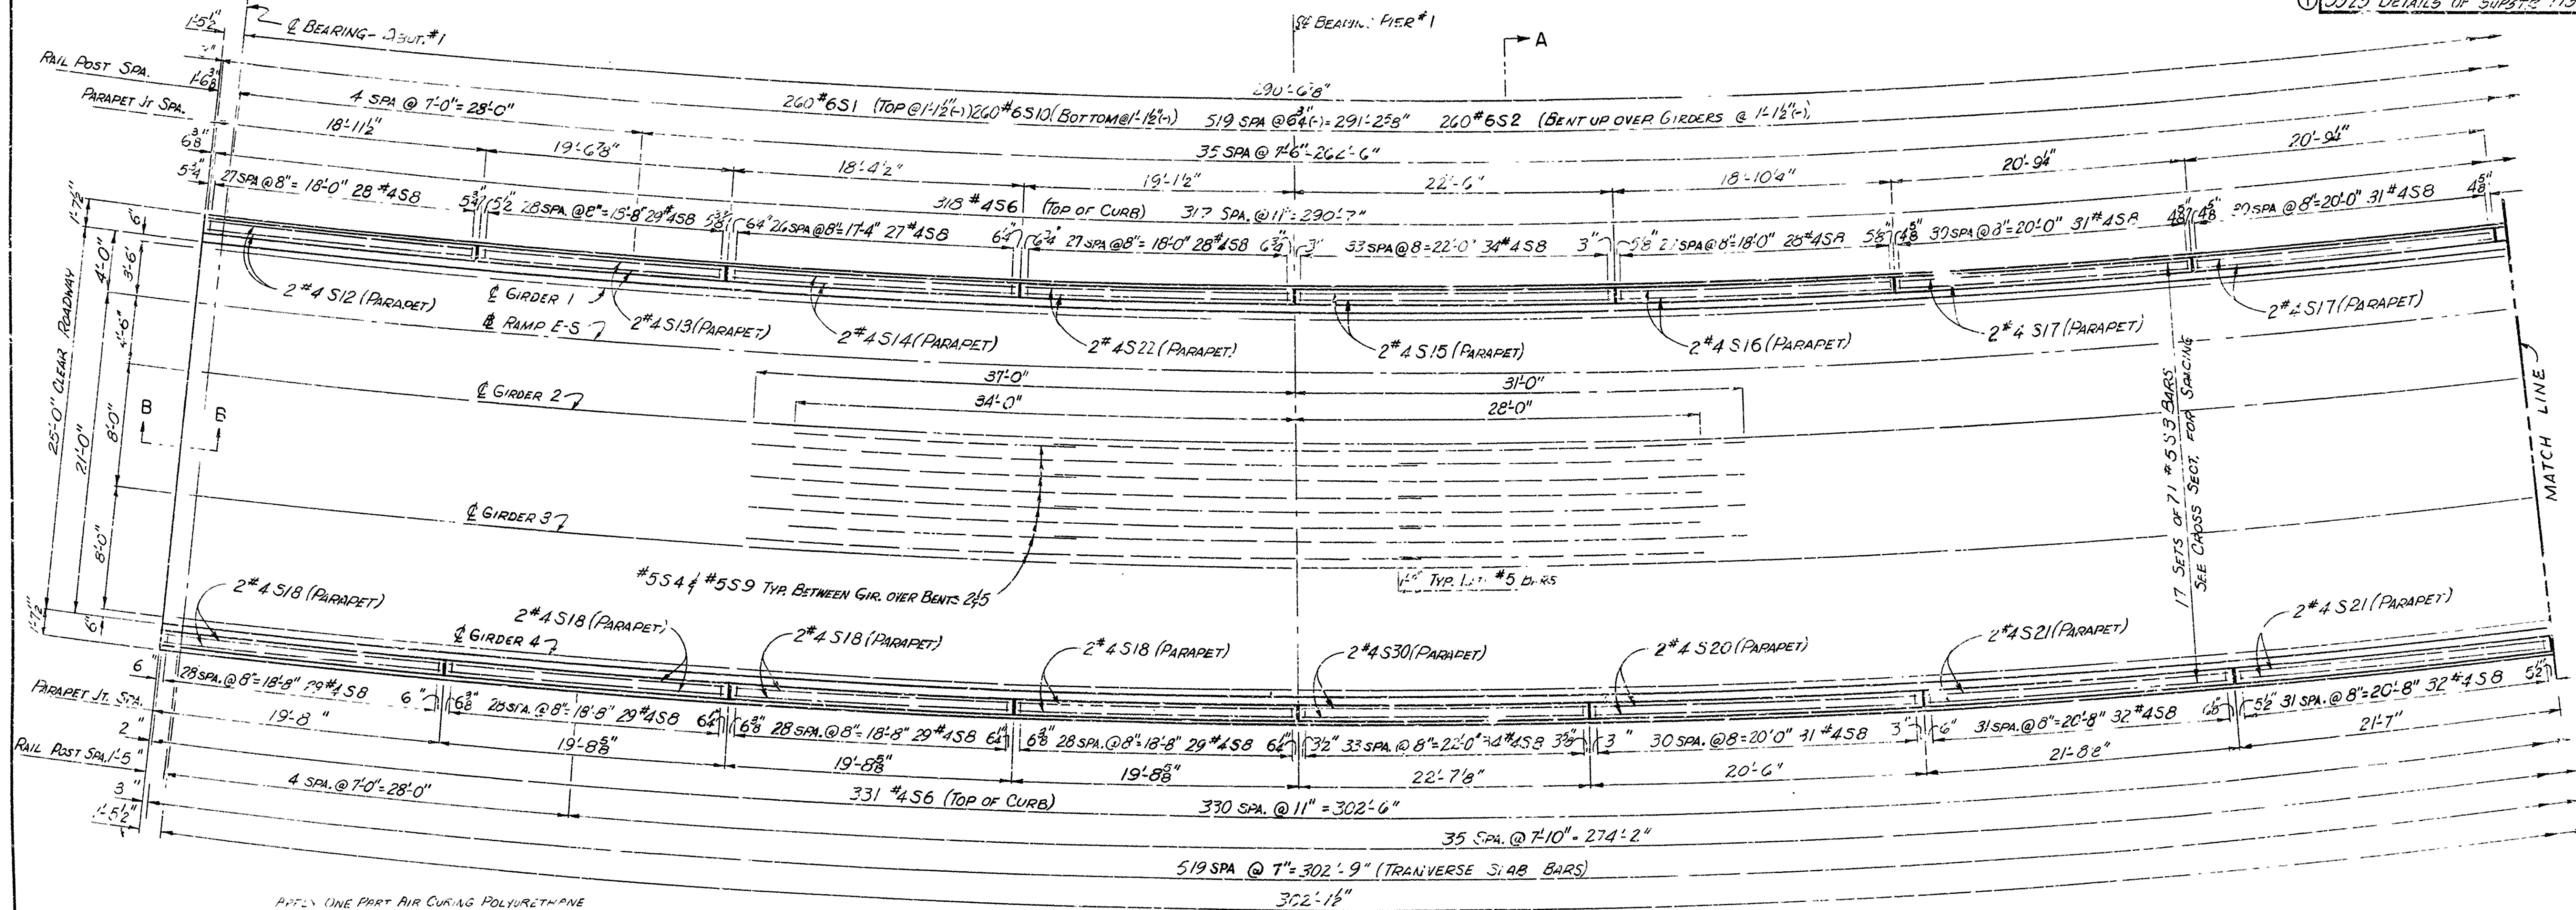 1'-5½"
℄ BEARING - ABUT. #1
℄ BEARING PIER #1
A
RAIL POST SPA.
1'-6⅜"
PARAPET JT SPA.
4 SPA @ 7'-0" = 28'-0"
260 #6S1 (TOP @ 1'-1½"(-)) 260 #6S10 (BOTTOM @ 1'-1½"(-)) 519 SPA @ 6¾"(-) = 291'-2⅝" 260 #6S2 (BENT UP OVER GIRDERS @ 1'-1½"(-))
35 SPA @ 7'-6" = 262'-6"
18'-11½"
19'-6⅞"
18'-4½"
19'-1½"
22'-6"
18'-10¼"
20'-9¼"
20'-9¼"
6⅜"
5¾"
27 SPA @ 8" = 18'-0" 28 #4S8
28 SPA. @ 8" = 18'-8" 29 #4S8
26 SPA @ 8" = 17'-4" 27 #4S8
27 SPA @ 8" = 18'-0" 28 #4S8
33 SPA @ 8 = 22'-0" 34 #4S8
27 SPA @ 8" = 18'-0" 28 #4S8
30 SPA @ 8" = 20'-0" 31 #4S8
30 SPA @ 8" = 20'-0" 31 #4S8
318 #4S6 (TOP OF CURB) 317 SPA. @ 11" = 290'-7"
1'-7½"
6"
4'-0"
3'-6"
4'-6"
8'-0"
8'-0"
21'-0"
25'-0" CLEAR ROADWAY
2 #4 S12 (PARAPET)
℄ GIRDER 1
℄ RAMP E-S
2 #4 S13 (PARAPET)
2 #4 S14 (PARAPET)
2 #4 S22 (PARAPET)
2 #4 S15 (PARAPET)
2 #4 S16 (PARAPET)
2 #4 S17 (PARAPET)
2 #4 S17 (PARAPET)
℄ GIRDER 2
37'-0"
31'-0"
34'-0"
28'-0"
B
B
℄ GIRDER 3
#5S4 & #5S9 TYP. BETWEEN GIR. OVER BENTS 2&5
17 SETS OF 71 #5 S3 BARS
SEE CROSS SECT. FOR SPACING
MATCH LINE
1'-7½"
6"
2 #4 S18 (PARAPET)
℄ GIRDER 4
2 #4 S18 (PARAPET)
2 #4 S18 (PARAPET)
2 #4 S18 (PARAPET)
2 #4 S30 (PARAPET)
2 #4 S20 (PARAPET)
2 #4 S21 (PARAPET)
2 #4 S21 (PARAPET)
6"
28 SPA. @ 8" = 18'-8" 29 #4S8 6"
6⅜" 28 SPA. @ 8" = 18'-8" 29 #4S8 6¼"
6⅜" 28 SPA. @ 8" = 18'-8" 29 #4S8 6¼"
6⅜" 28 SPA. @ 8" = 18'-8" 29 #4S8 6¼"
3½" 33 SPA. @ 8" = 22'-0" 34 #4S8 3⅝"
3" 30 SPA. @ 8 = 20'0" 31 #4S8 3"
6" 31 SPA. @ 8" = 20'-8" 32 #4S8 6⅛"
5½" 31 SPA. @ 8" = 20'-8" 32 #4S8 5½"
PARAPET JT. SPA.
19'-8"
19'-8⅝"
19'-8⅝"
19'-8⅝"
22'-7⅛"
20'-6"
21'-8⅛"
21'-7"
2"
RAIL POST SPA. 1'-5"
3"
1'-5½"
4 SPA. @ 7'-0" = 28'-0"
331 #4S6 (TOP OF CURB) 330 SPA. @ 11" = 302'-6"
35 SPA. @ 7'-10" = 274'-2"
519 SPA @ 7" = 302'-9" (TRANVERSE SLAB BARS)
302'-1½"
APPLY ONE PART AIR CURING POLYURETHANE